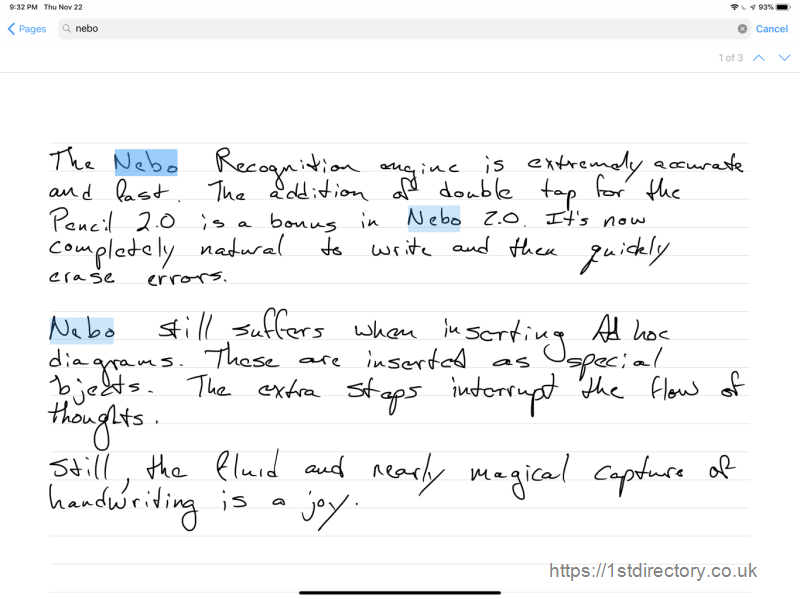 9:32 PM Thu Nov 22 93%
Pages nebo Cancel
1 of 3
The Nebo Recognition engine is extremely accurate
and fast. The addition of double tap for the
Pencil 2.0 is a bonus in Nebo 2.0. It's now
completely natural to write and then quickly
erase errors.
Nebo still suffers when inserting Ad hoc
diagrams. These are inserted as special
objects. The extra steps interrupt the flow of
thoughts.
Still, the fluid and nearly magical capture of
handwriting is a joy.
https://1stdirectory.co.uk